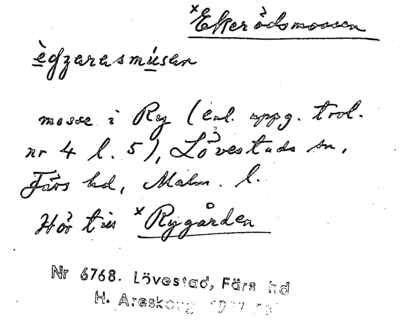 ×Ekerödsmossen
ègzarasmúsen
mosse i Ry (enl. uppg. trol.
nr 4 l. 5), Lövestads sn,
Färs hd, Malm. l.
Hör till ×Rygården
Nr 6768. Lövestad, Färs hd
H. Areskoug